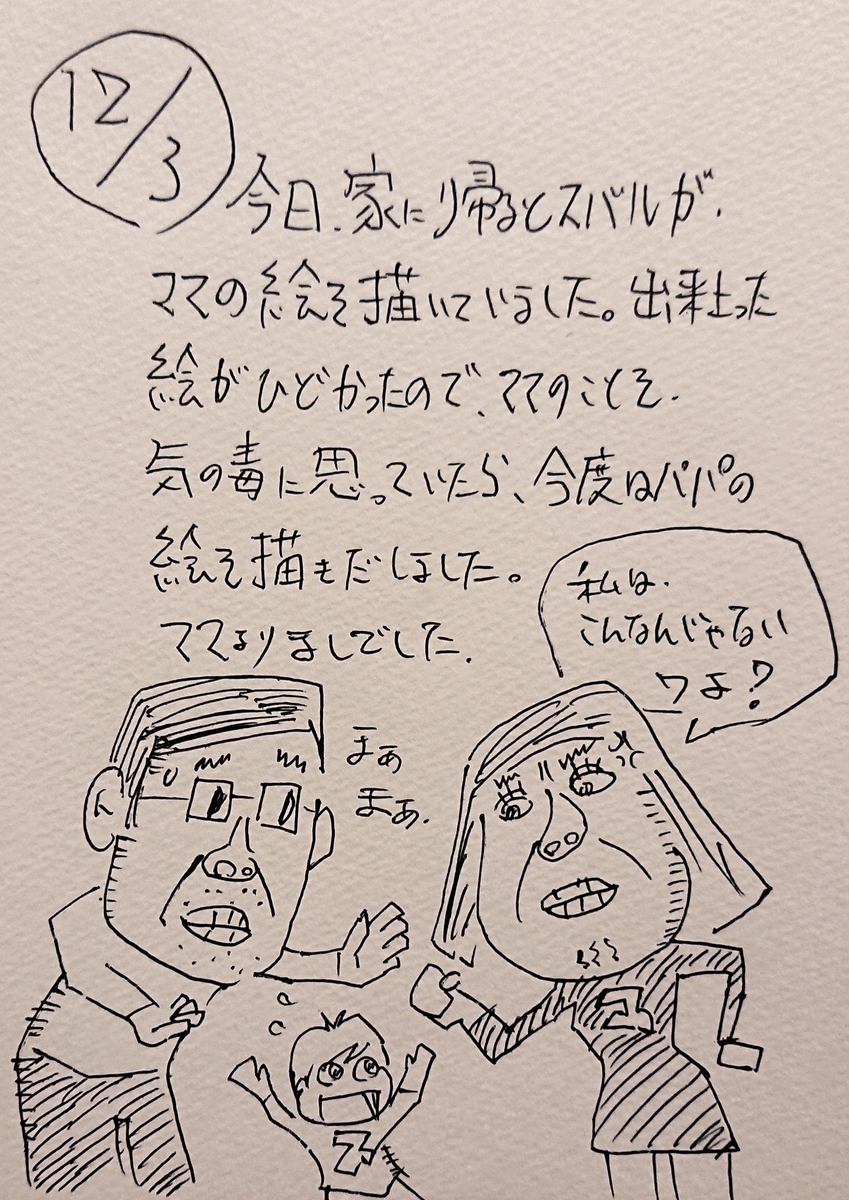 12/3
今日、家に帰るとスバルが、
ママの絵を描いていました。出来上った
絵がひどかったので、ママのことを、
気の毒に思っていたら、今度はパパの
絵を描きだしました。
ママよりましでした。
私は、
こんなんじゃない
ワよ?
まぁ
まぁ、
マ
ス